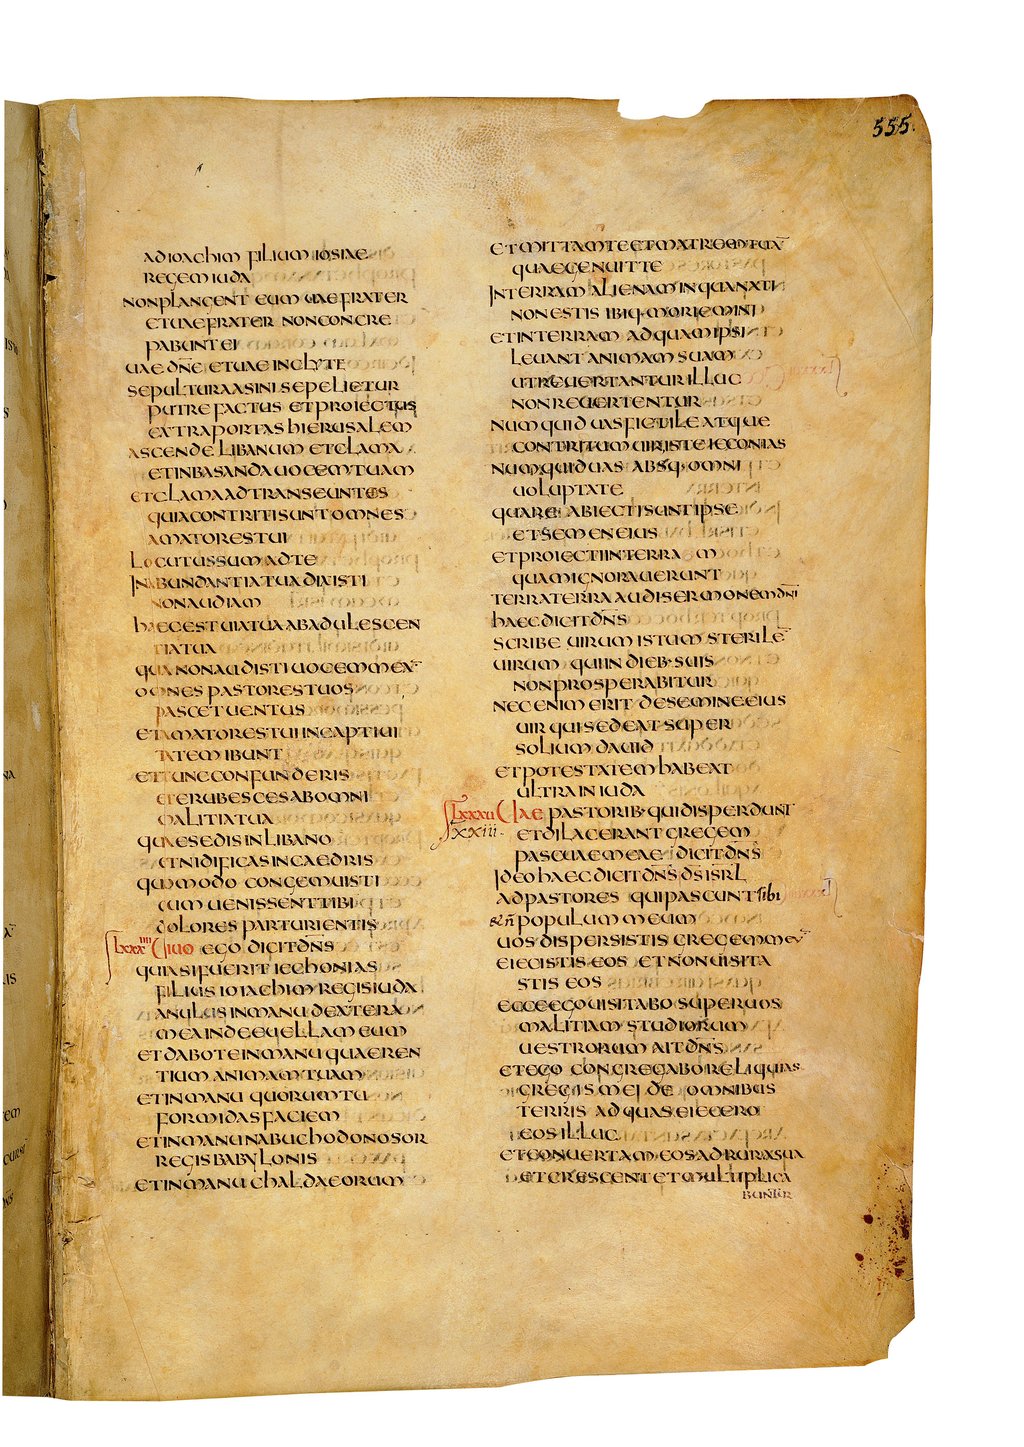 555
ADIOACHIM FILIUM IOSIAE
REGEM IUDA
NON PLANGENT EUM UAE FRATER
ET UAE FRATER NON CONCRE
PABUNT EI
UAE DNE ET UAE INCLYTE
SEPULTURA ASINI SEPELIETUR
PUTREFACTUS ET PROIECTUS
EXTRA PORTAS HIERUSALEM
ASCENDE LIBANUM ET CLAMA
ET IN BASAN DA UOCEM TUAM
ET CLAMA AD TRANSEUNTES
QUIA CONTRITI SUNT OMNES
AMATORES TUI
LOCUTUS SUM AD TE
IN ABUNDANTIA TUA DIXISTI
NON AUDIAM
HAEC EST UIA TUA AB ADULESCEN
TIA TUA
QUIA NON AUDISTI UOCEM MEA
OMNES PASTORES TUOS
PASCET UENTUS
ET AMATORES TUI IN CAPTIUI
TATEM IBUNT
ET TUNC CONFUNDERIS
ET ERUBESCES AB OMNI
MALITIA TUA
QUAE SEDIS IN LIBANO
ET NIDIFICAS IN CAEDRIS
QUOMODO CONGEMUISTI
CUM UENISSENT TIBI
DOLORES PARTURIENTIS
LXXXIIII UIUO EGO DICIT DNS
QUIA SI FUERIT IECHONIAS
FILIUS IOIACHIM REGIS IUDA
ANULUS IN MANU DEXTERA
MEA INDE EUELLAM EUM
ET DABO TE IN MANU QUAEREN
TIUM ANIMAM TUAM
ET IN MANU QUORUM TU
FORMIDAS FACIEM
ET IN MANU NABUCHODONOSOR
REGIS BABYLONIS
ET IN MANU CHALDAEORUM
ET MITTAM TE ET MATREM TUA
QUAE GENUIT TE
IN TERRAM ALIENAM IN QUA NATI
NON ESTIS IBIQ· MORIEMINI
ET IN TERRAM AD QUAM IPSI
LEUANT ANIMAM SUAM
UT REUERTANTUR ILLUC
NON REUERTENTUR
NUMQUID UAS FICTILE ATQUE
CONTRITUM UIR ISTE IECONIAS
NUMQUID UAS ABSQ· OMNI
UOLUPTATE
QUARE ABIECTI SUNT IPSE
ET SEMEN EIUS
ET PROIECTI IN TERRAM
QUAM IGNORAUERUNT
TERRA TERRA AUDI SERMONEM DNI
HAEC DICIT DNS
SCRIBE UIRUM ISTUM STERILE
UIRUM QUI IN DIEB· SUIS
NON PROSPERABITUR
NEC ENIM ERIT DE SEMINE EIUS
UIR QUI SEDEAT SUPER
SOLIUM DAUID
ET POTESTATEM HABEAT
ULTRA IN IUDA
LXXXU UAE PASTORIB· QUI DISPERDUNT
XXIII· ET DILACERANT GREGEM
PASCUAE MEAE DICIT DNS
IDEO HAEC DICIT DNS DS ISRL
AD PASTORES QUI PASCUNT sibi
& n̄ POPULUM MEUM
UOS DISPERSISTIS GREGEM MEU
EIECISTIS EOS ET NON UISITA
STIS EOS
ECCE EGO UISITABO SUPER UOS
MALITIAM STUDIORUM
UESTRORUM AIT DNS
ET EGO CONGREGABO RELIQUIAS
GREGIS MEI DE OMNIBUS
TERRIS AD QUAS EIECERO
EOS ILLUC
ET CONUERTAM EOS AD RURA SUA
ET CRESCENT ET MULTIPLICA
BUNTUR